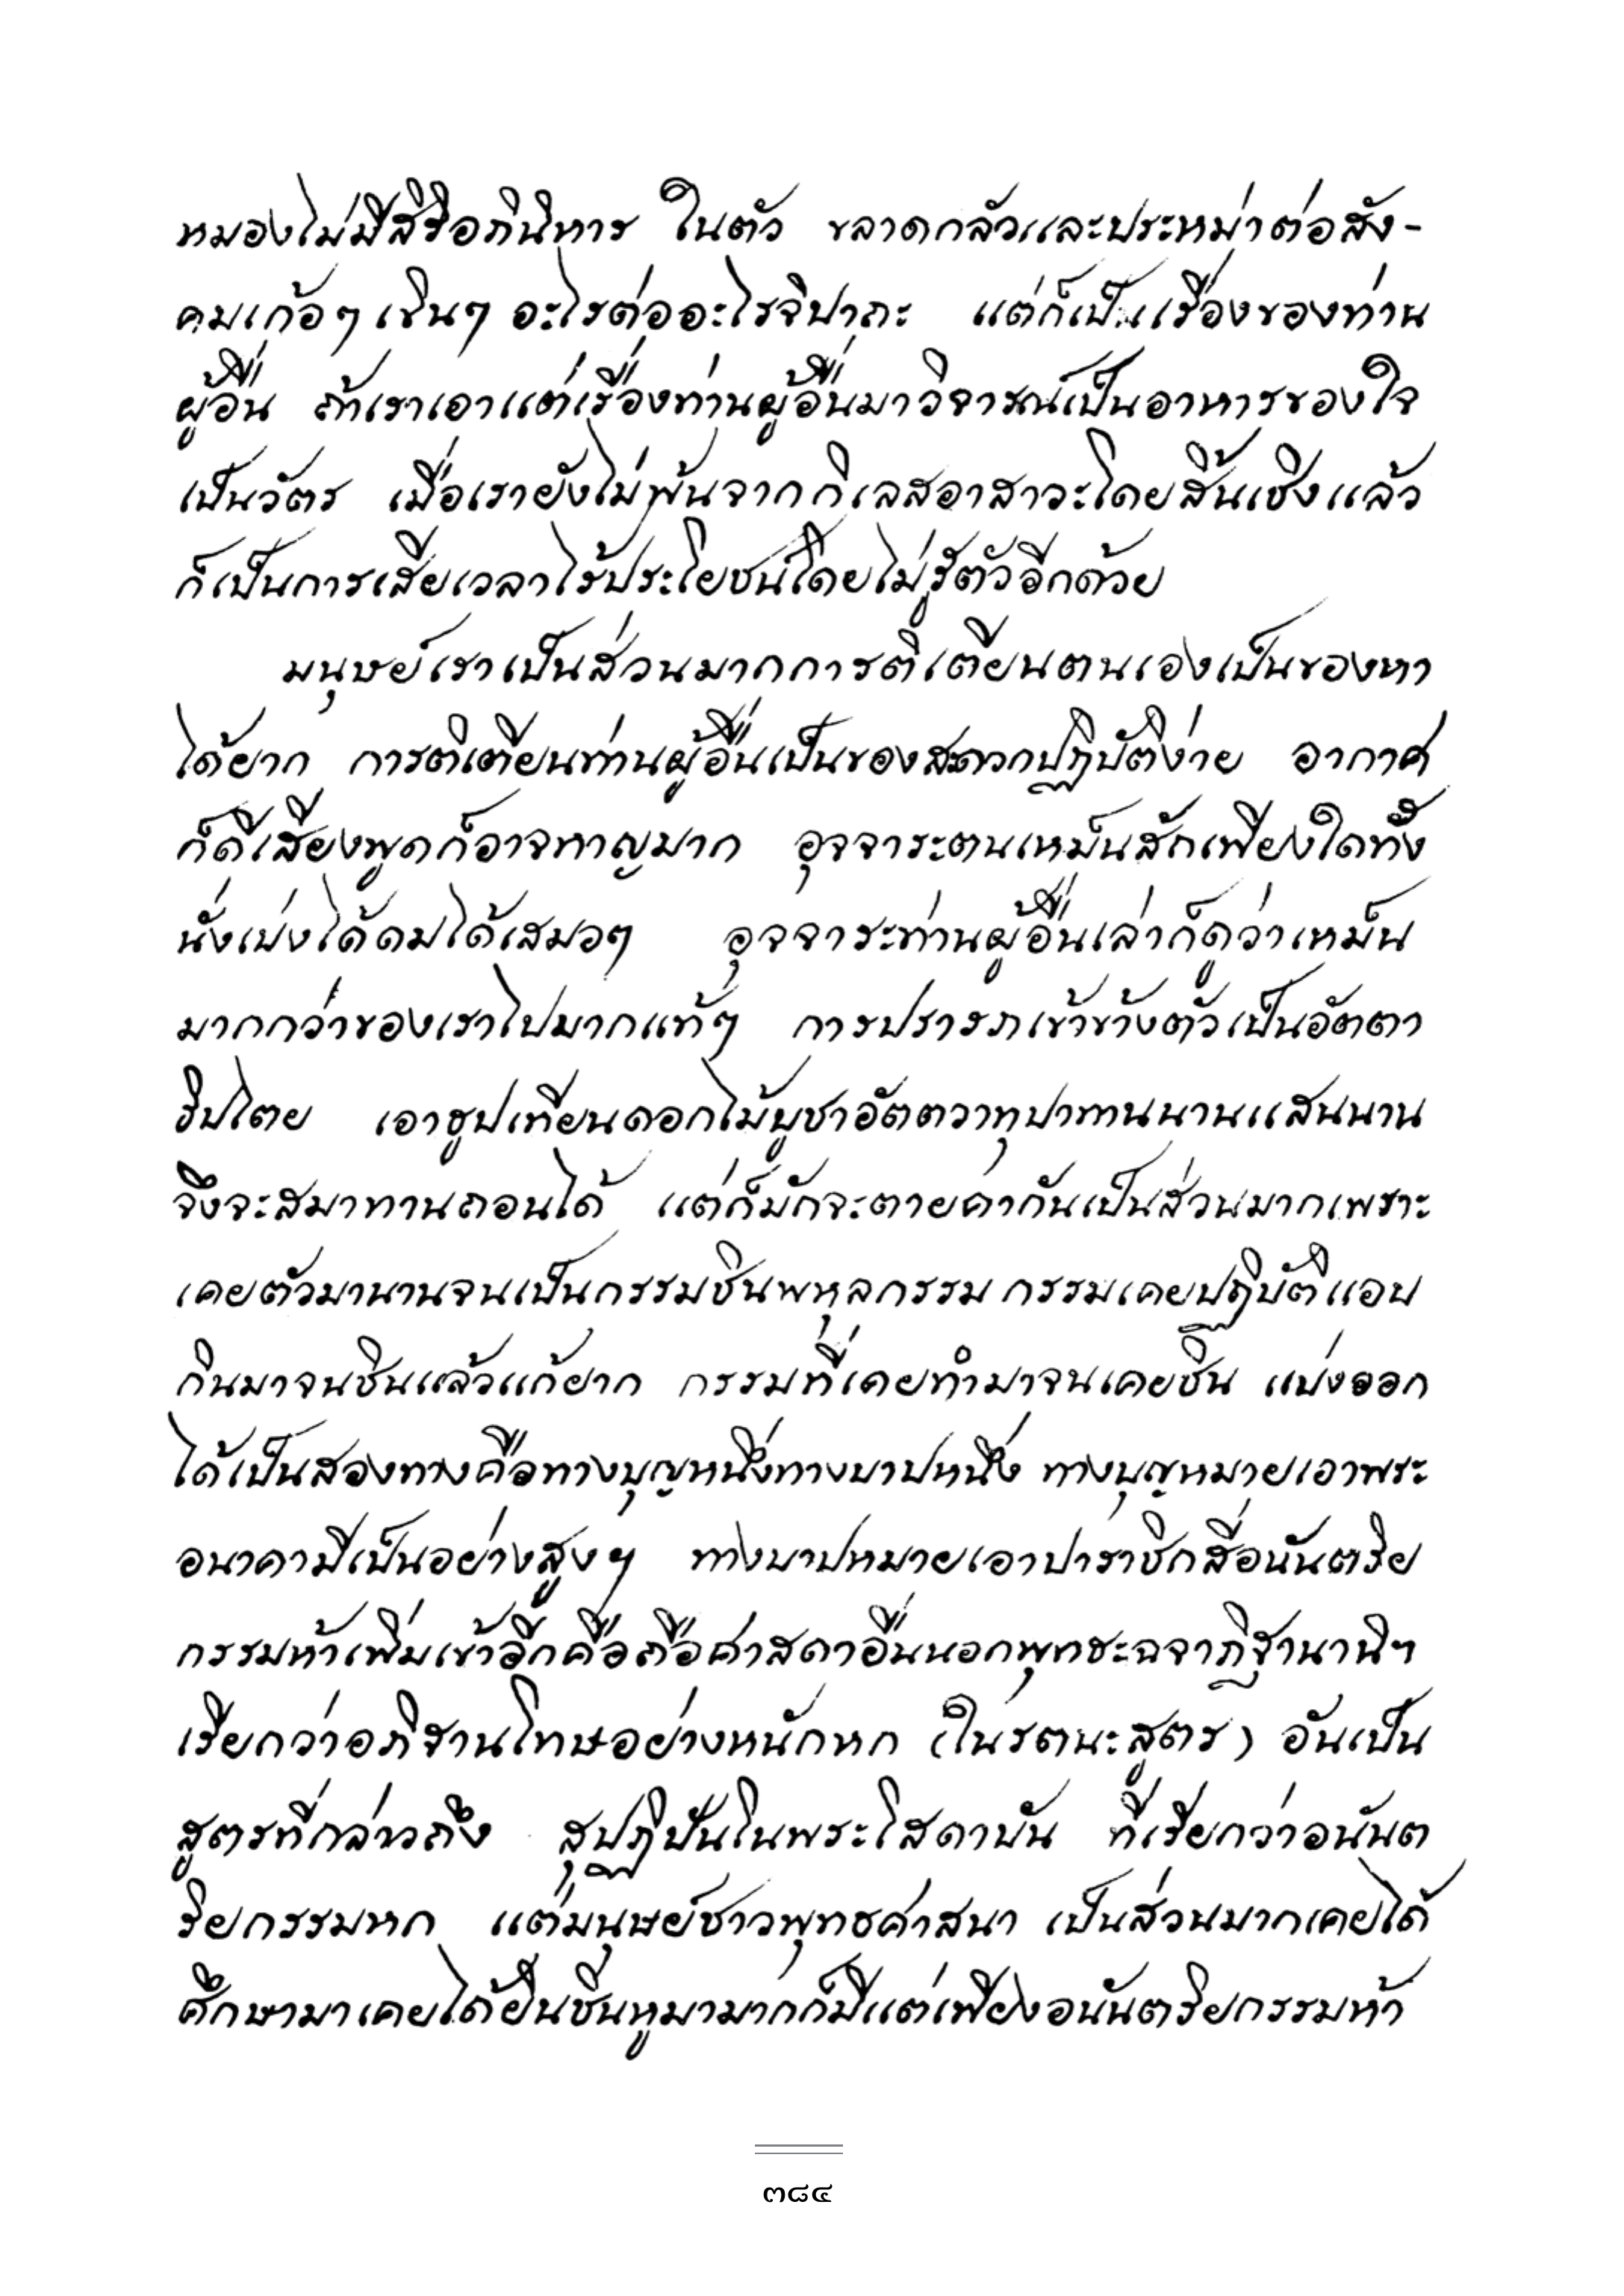 หมองไม่มีสิริอภินิหาร ในตัว ขลาดกลัวและประหม่าต่อสัง-
คมเก้อๆ เขินๆ อะไรต่ออะไรจิปาถะ แต่ก็เป็นเรื่องของท่าน
ผู้อื่น ถ้าเราเอาแต่เรื่องท่านผู้อื่นมาวิจารณ์เป็นอาหารของใจ
เป็นวัตร เมื่อเรายังไม่พ้นจากกิเลสอาสาวะโดยสิ้นเชิงแล้ว
ก็เป็นการเสียเวลาไร้ประโยชน์โดยไม่รู้ตัวอีกด้วย
มนุษย์เราเป็นส่วนมากการติเตียนตนเองเป็นของหา
ได้ยาก การติเตียนท่านผู้อื่นเป็นของสะดวกปฏิบัติง่าย อากาศ
ก็ดีเสียงพูดก็อาจหาญมาก อุจจาระตนเหม็นสักเพียงใดทั้ง
นั่งเบ่งได้ดมได้เสมอๆ อุจจาระท่านผู้อื่นเล่าก็ดูว่าเหม็น
มากกว่าของเราไปมากแท้ๆ การปรารภเข้าข้างตัวเป็นอัตตา
ธิปไตย เอาธูปเทียนดอกไม้บูชาอัตตวาทุปาทานนานแสนนาน
จึงจะสมาทานถอนได้ แต่ก็มักจะตายคากันเป็นส่วนมากเพราะ
เคยตัวมานานจนเป็นกรรมชินพหุลกรรม กรรมเคยปฏิบัติแอบ
กินมาจนชินแล้วแก้ยาก กรรมที่เคยทำมาจนเคยชิน แบ่งออก
ได้เป็นสองทางคือทางบุญหนึ่งทางบาปหนึ่ง ทางบุญหมายเอาพระ
อนาคามีเป็นอย่างสูงฯ ทางบาปหมายเอาปาราชิกสี่อนันตริย
กรรมห้าเพิ่มเข้าอีกคือถือศาสดาอื่นนอกพุทธะฉจาภิฐานานิฯ
เรียกว่าอภิฐานโทษอย่างหนักหก (ในรตนะสูตร) อันเป็น
สูตรที่กล่าวถึง สุปฏิปันโนพระโสดาบัน ที่เรียกว่าอนันต
ริยกรรมหก แต่มนุษย์ชาวพุทธศาสนา เป็นส่วนมากเคยได้
ศึกษามาเคยได้ยินชินหูมามากก็มีแต่เพียงอนันตริยกรรมห้า
๓๘๔